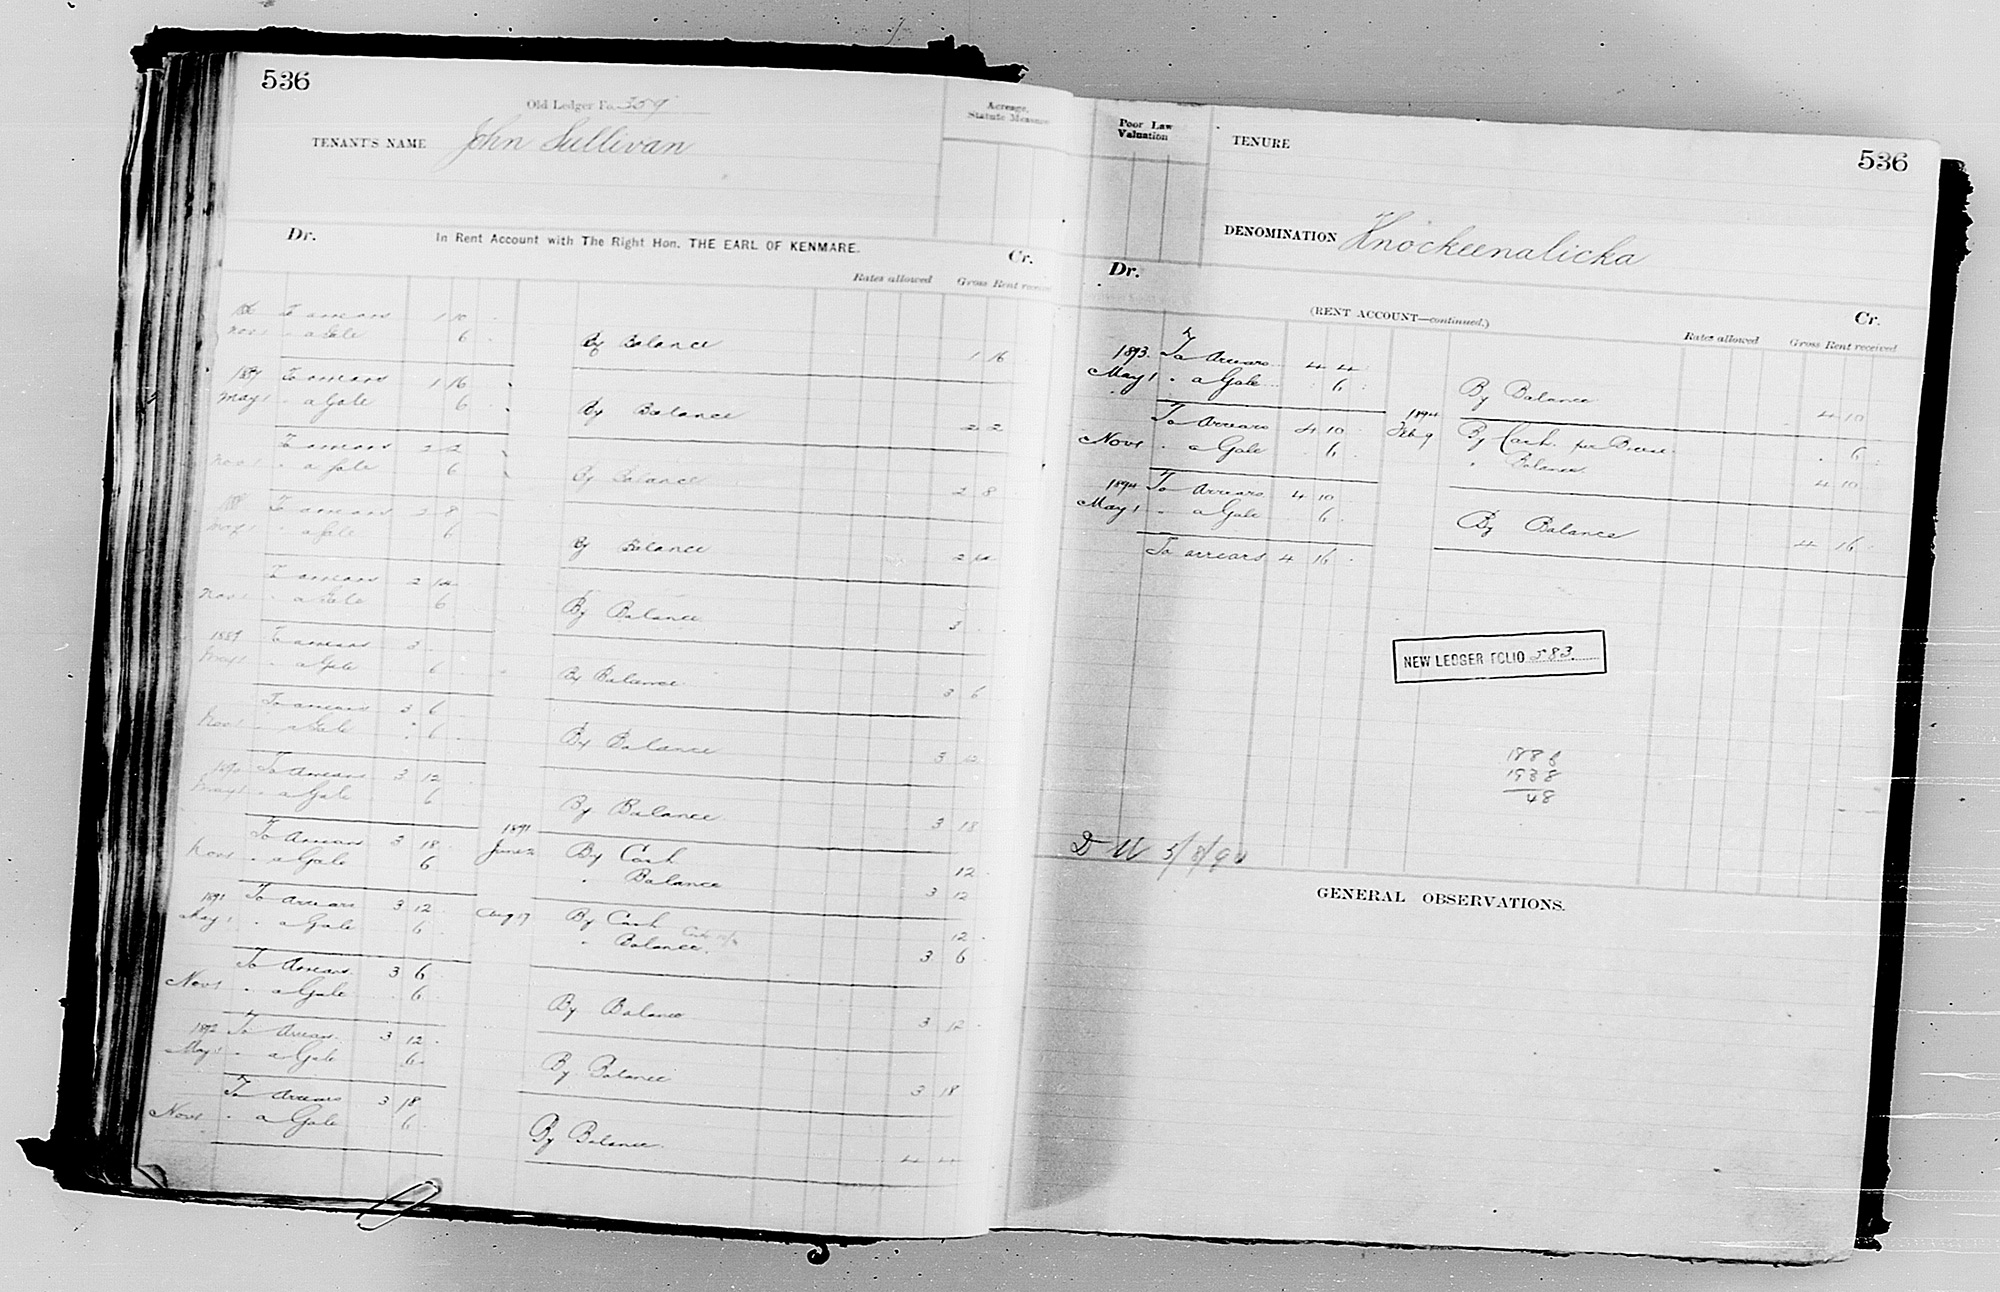 536
Old Ledger Fo. 359
TENANT'S NAME John Sullivan
Acreage,
Statute Measure
Dr. In Rent Account with The Right Hon. THE EARL OF KENMARE. Cr.
Rates allowed Gross Rent received
To arrears 1 10
Nov 1 " a Gale 6
By Balance 1 16
1887 To arrears 1 16
May 1 " a Gale 6
By Balance 2 2
To arrears 2 2
Nov 1 " a Gale 6
By Balance 2 8
To arrears 2 8
May 1 " a Gale 6
By Balance 2 14
To arrears 2 14
Nov 1 " a Gale 6
By Balance 3
1889 To arrears 3
May 1 " a Gale 6
By Balance 3 6
To arrears 3 6
Nov 1 " a Gale 6
By Balance 3 12
1890 To Arrears 3 12
May 1 " a Gale 6
By Balance 3 18
To Arrears 3 18 1891
Nov 1 " a Gale 6 June By Cash 12
" Balance 3 12
1891 To Arrears 3 12
May 1 " a Gale 6 Aug 17 By Cash 12
" Balance 3 6
To Arrears 3 6
Nov 1 " a Gale 6
By Balance 3 12
1892 To Arrears 3 12
May 1 " a Gale 6
By Balance 3 18
To Arrears 3 18
Nov 1 " a Gale 6
By Balance 4 4
Poor Law
Valuation
TENURE
536
DENOMINATION Knockeenalicka
Dr. (RENT ACCOUNT—continued.) Cr.
Rates allowed Gross Rent received
1893. To Arrears 4 4
May 1 " a Gale 6
By Balance 4 10
To Arrears 4 10 1894
Nov 1 " a Gale 6 Feb 9 By Cash per 6
" Balance 4 10
1894 To Arrears 4 10
May 1 " a Gale 6
By Balance 4 16
To arrears 4 16
NEW LEDGER FOLIO 583
1886
1938
48
5/8/94
GENERAL OBSERVATIONS.